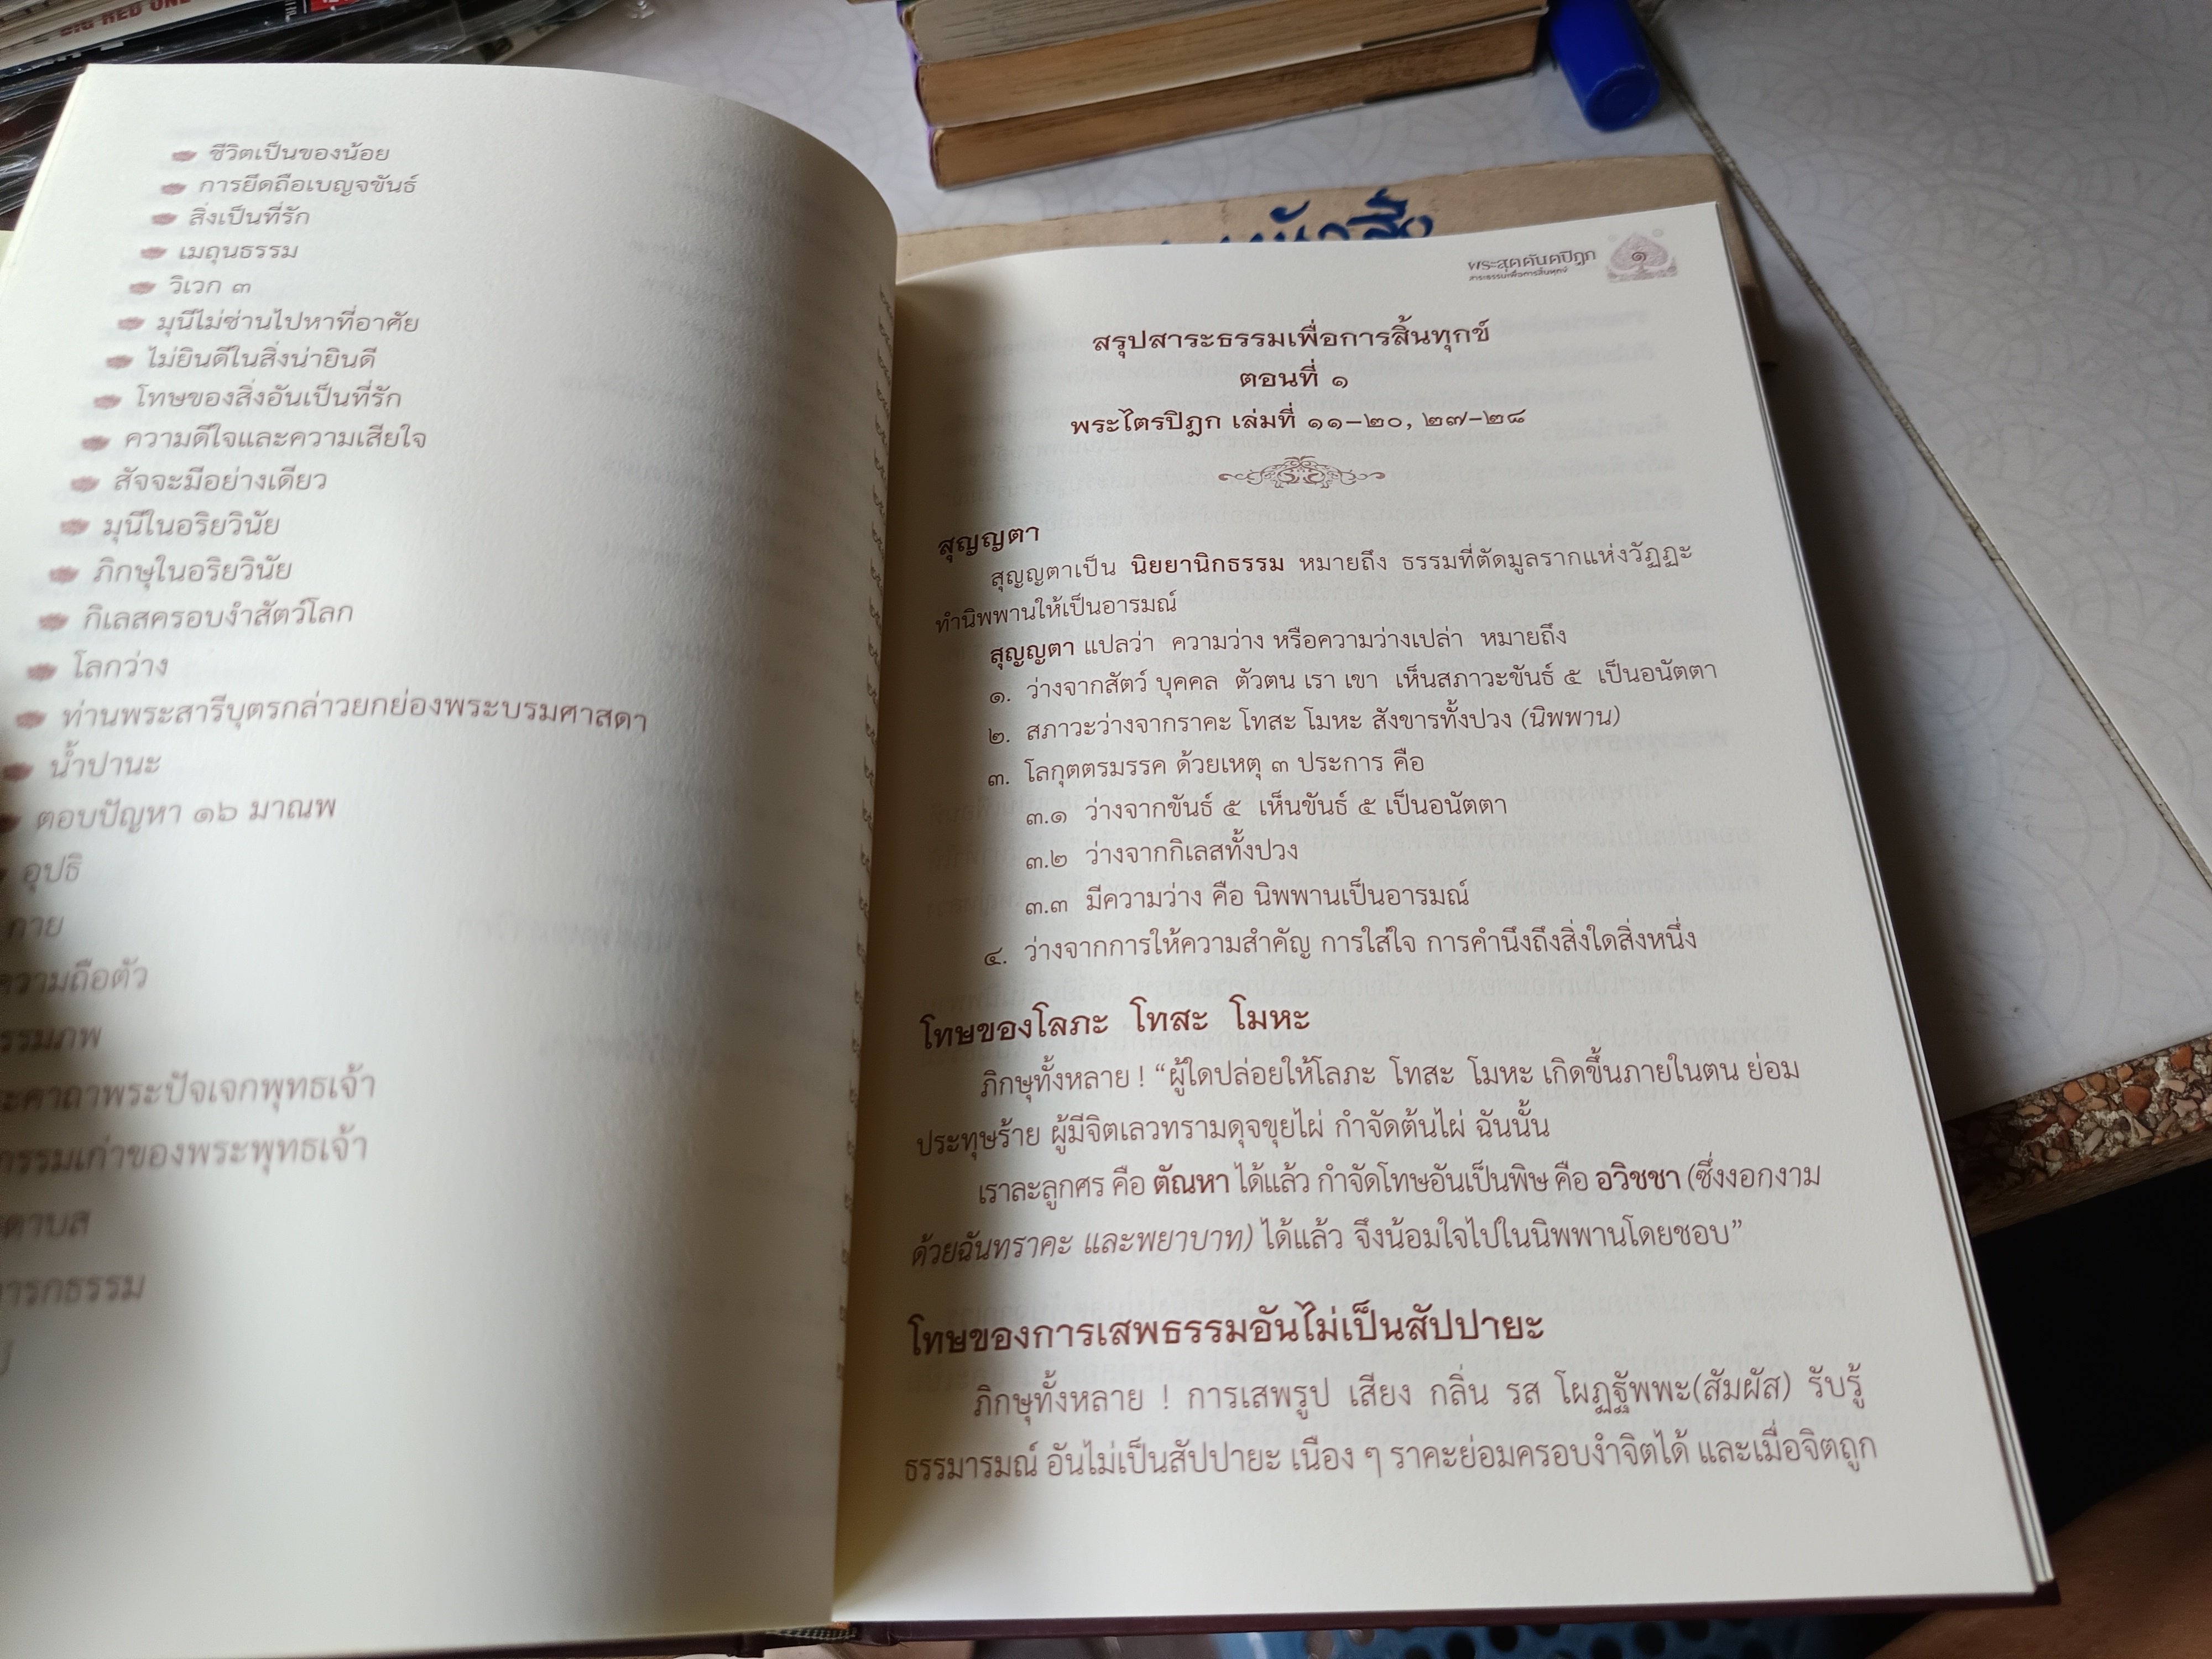 BIG RED ONE
ชีวิตเป็นของน้อย
การยึดถือเบญจขันธ์
สิ่งเป็นที่รัก
เมถุนธรรม
วิเวก ๓
มุนีไม่ซ่านไปหาที่อาศัย
ไม่ยินดีในสิ่งน่ายินดี
โทษของสิ่งอันเป็นที่รัก
ความดีใจและความเสียใจ
สัจจะมีอย่างเดียว
มุนีในอริยวินัย
ภิกษุในอริยวินัย
กิเลสครอบงำสัตว์โลก
โลกว่าง
ท่านพระสารีบุตรกล่าวยกย่องพระบรมศาสดา
น้ำปานะ
ตอบปัญหา ๑๖ มาณพ
อุปธิ
กาย
ความถือตัว
รรมภพ
ะคาถาพระปัจเจกพุทธเจ้า
กรรมเก่าของพระพุทธเจ้า
ดาบส
ารกธรรม
พระสุตตันตปิฎก
สาระธรรมเพื่อการสิ้นทุกข์
๑
สรุปสาระธรรมเพื่อการสิ้นทุกข์
ตอนที่ ๑
พระไตรปิฎก เล่มที่ ๑๑–๒๐, ๒๗–๒๘
สุญญตา
สุญญตาเป็น นิยยานิกธรรม หมายถึง ธรรมที่ตัดมูลรากแห่งวัฏฏะ
ทำนิพพานให้เป็นอารมณ์
สุญญตา แปลว่า ความว่าง หรือความว่างเปล่า หมายถึง
๑. ว่างจากสัตว์ บุคคล ตัวตน เรา เขา เห็นสภาวะขันธ์ ๕ เป็นอนัตตา
๒. สภาวะว่างจากราคะ โทสะ โมหะ สังขารทั้งปวง (นิพพาน)
๓. โลกุตตรมรรค ด้วยเหตุ ๓ ประการ คือ
๓.๑ ว่างจากขันธ์ ๕ เห็นขันธ์ ๕ เป็นอนัตตา
๓.๒ ว่างจากกิเลสทั้งปวง
๓.๓ มีความว่าง คือ นิพพานเป็นอารมณ์
๔. ว่างจากการให้ความสำคัญ การใส่ใจ การคำนึงถึงสิ่งใดสิ่งหนึ่ง
โทษของโลภะ โทสะ โมหะ
ภิกษุทั้งหลาย ! “ผู้ใดปล่อยให้โลภะ โทสะ โมหะ เกิดขึ้นภายในตน ย่อม
ประทุษร้าย ผู้มีจิตเลวทรามดุจขุยไผ่ กำจัดต้นไผ่ ฉันนั้น
เราละลูกศร คือ ตัณหา ได้แล้ว กำจัดโทษอันเป็นพิษ คือ อวิชชา (ซึ่งงอกงาม
ด้วยฉันทราคะ และพยาบาท) ได้แล้ว จึงน้อมใจไปในนิพพานโดยชอบ”
โทษของการเสพธรรมอันไม่เป็นสัปปายะ
ภิกษุทั้งหลาย ! การเสพรูป เสียง กลิ่น รส โผฏฐัพพะ(สัมผัส) รับรู้
ธรรมารมณ์ อันไม่เป็นสัปปายะ เนือง ๆ ราคะย่อมครอบงำจิตได้ และเมื่อจิตถูก